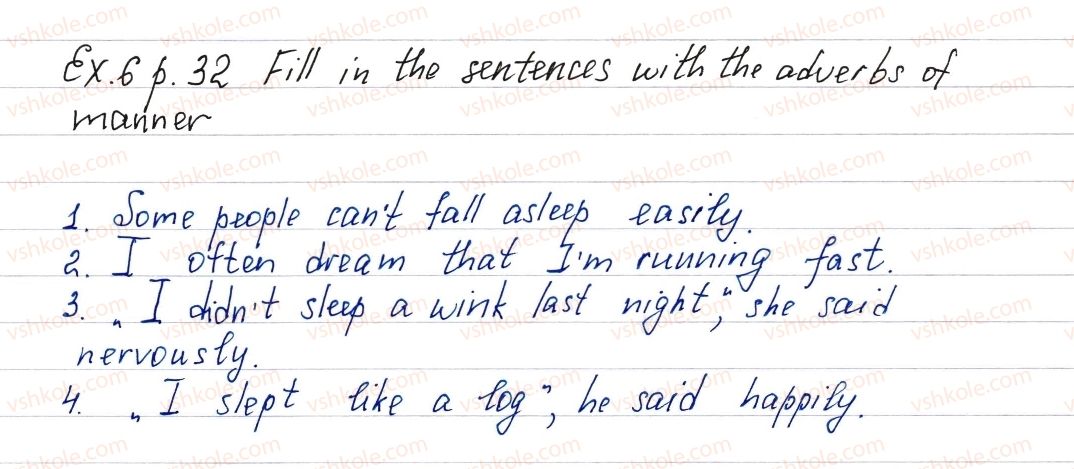 Ex.6 p.32 Fill in the sentences with the adverbs of
manner
1. Some people can't fall asleep easily.
2. I often dream that I'm running fast.
3. „I didn't sleep a wink last night," she said
nervously.
4. „I slept like a log", he said happily.